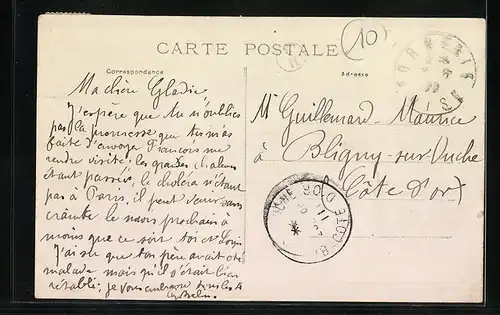 CARTE POSTALE
Correspondance
Adresse
10
Ma chère
J'espère que tu n'oublies
pas la promesse que tu m'as
faite d'envoyer François me
rendre visite, les grandes chaleurs
étant passé, le choléra n'étant
pas à Paris, il peut venir sans
crainte le mois prochain à
moins que ce soit toi et Louis
J'ai su que ton père avait été
malade mais qu'il s'était bien
rétabli, je vous embrasse tous
Mr Guillemard Maurice
à Bligny-sur-Ouche
Côte d'or
COTE D'OR